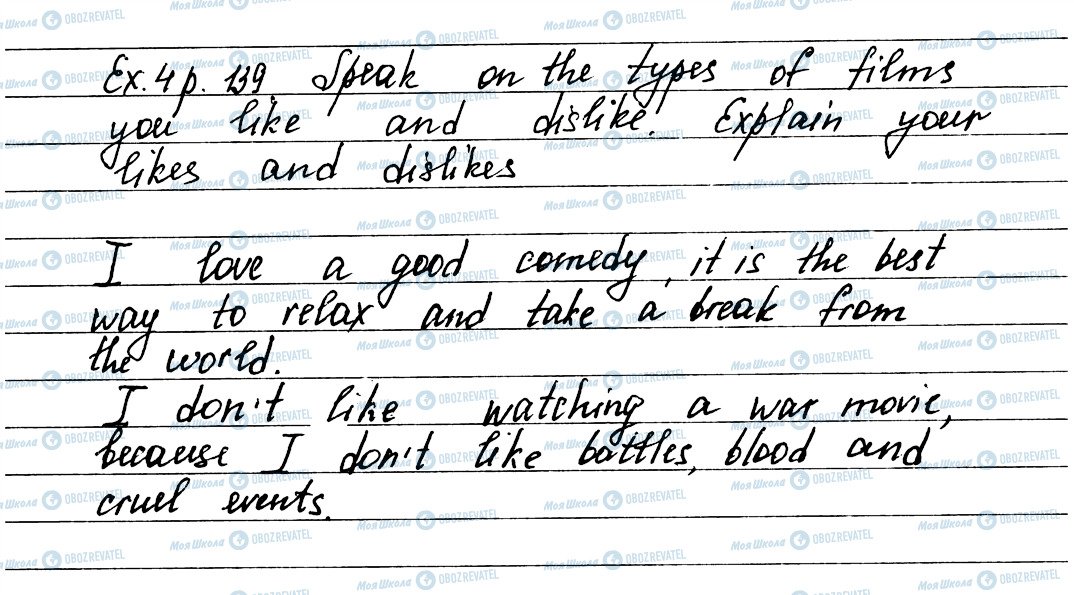 Ex. 4 p. 139. Speak on the types of films
you like and dislike. Explain your
likes and dislikes
I love a good comedy, it is the best
way to relax and take a break from
the world.
I don't like watching a war movie,
because I don't like battles, blood and
cruel events.